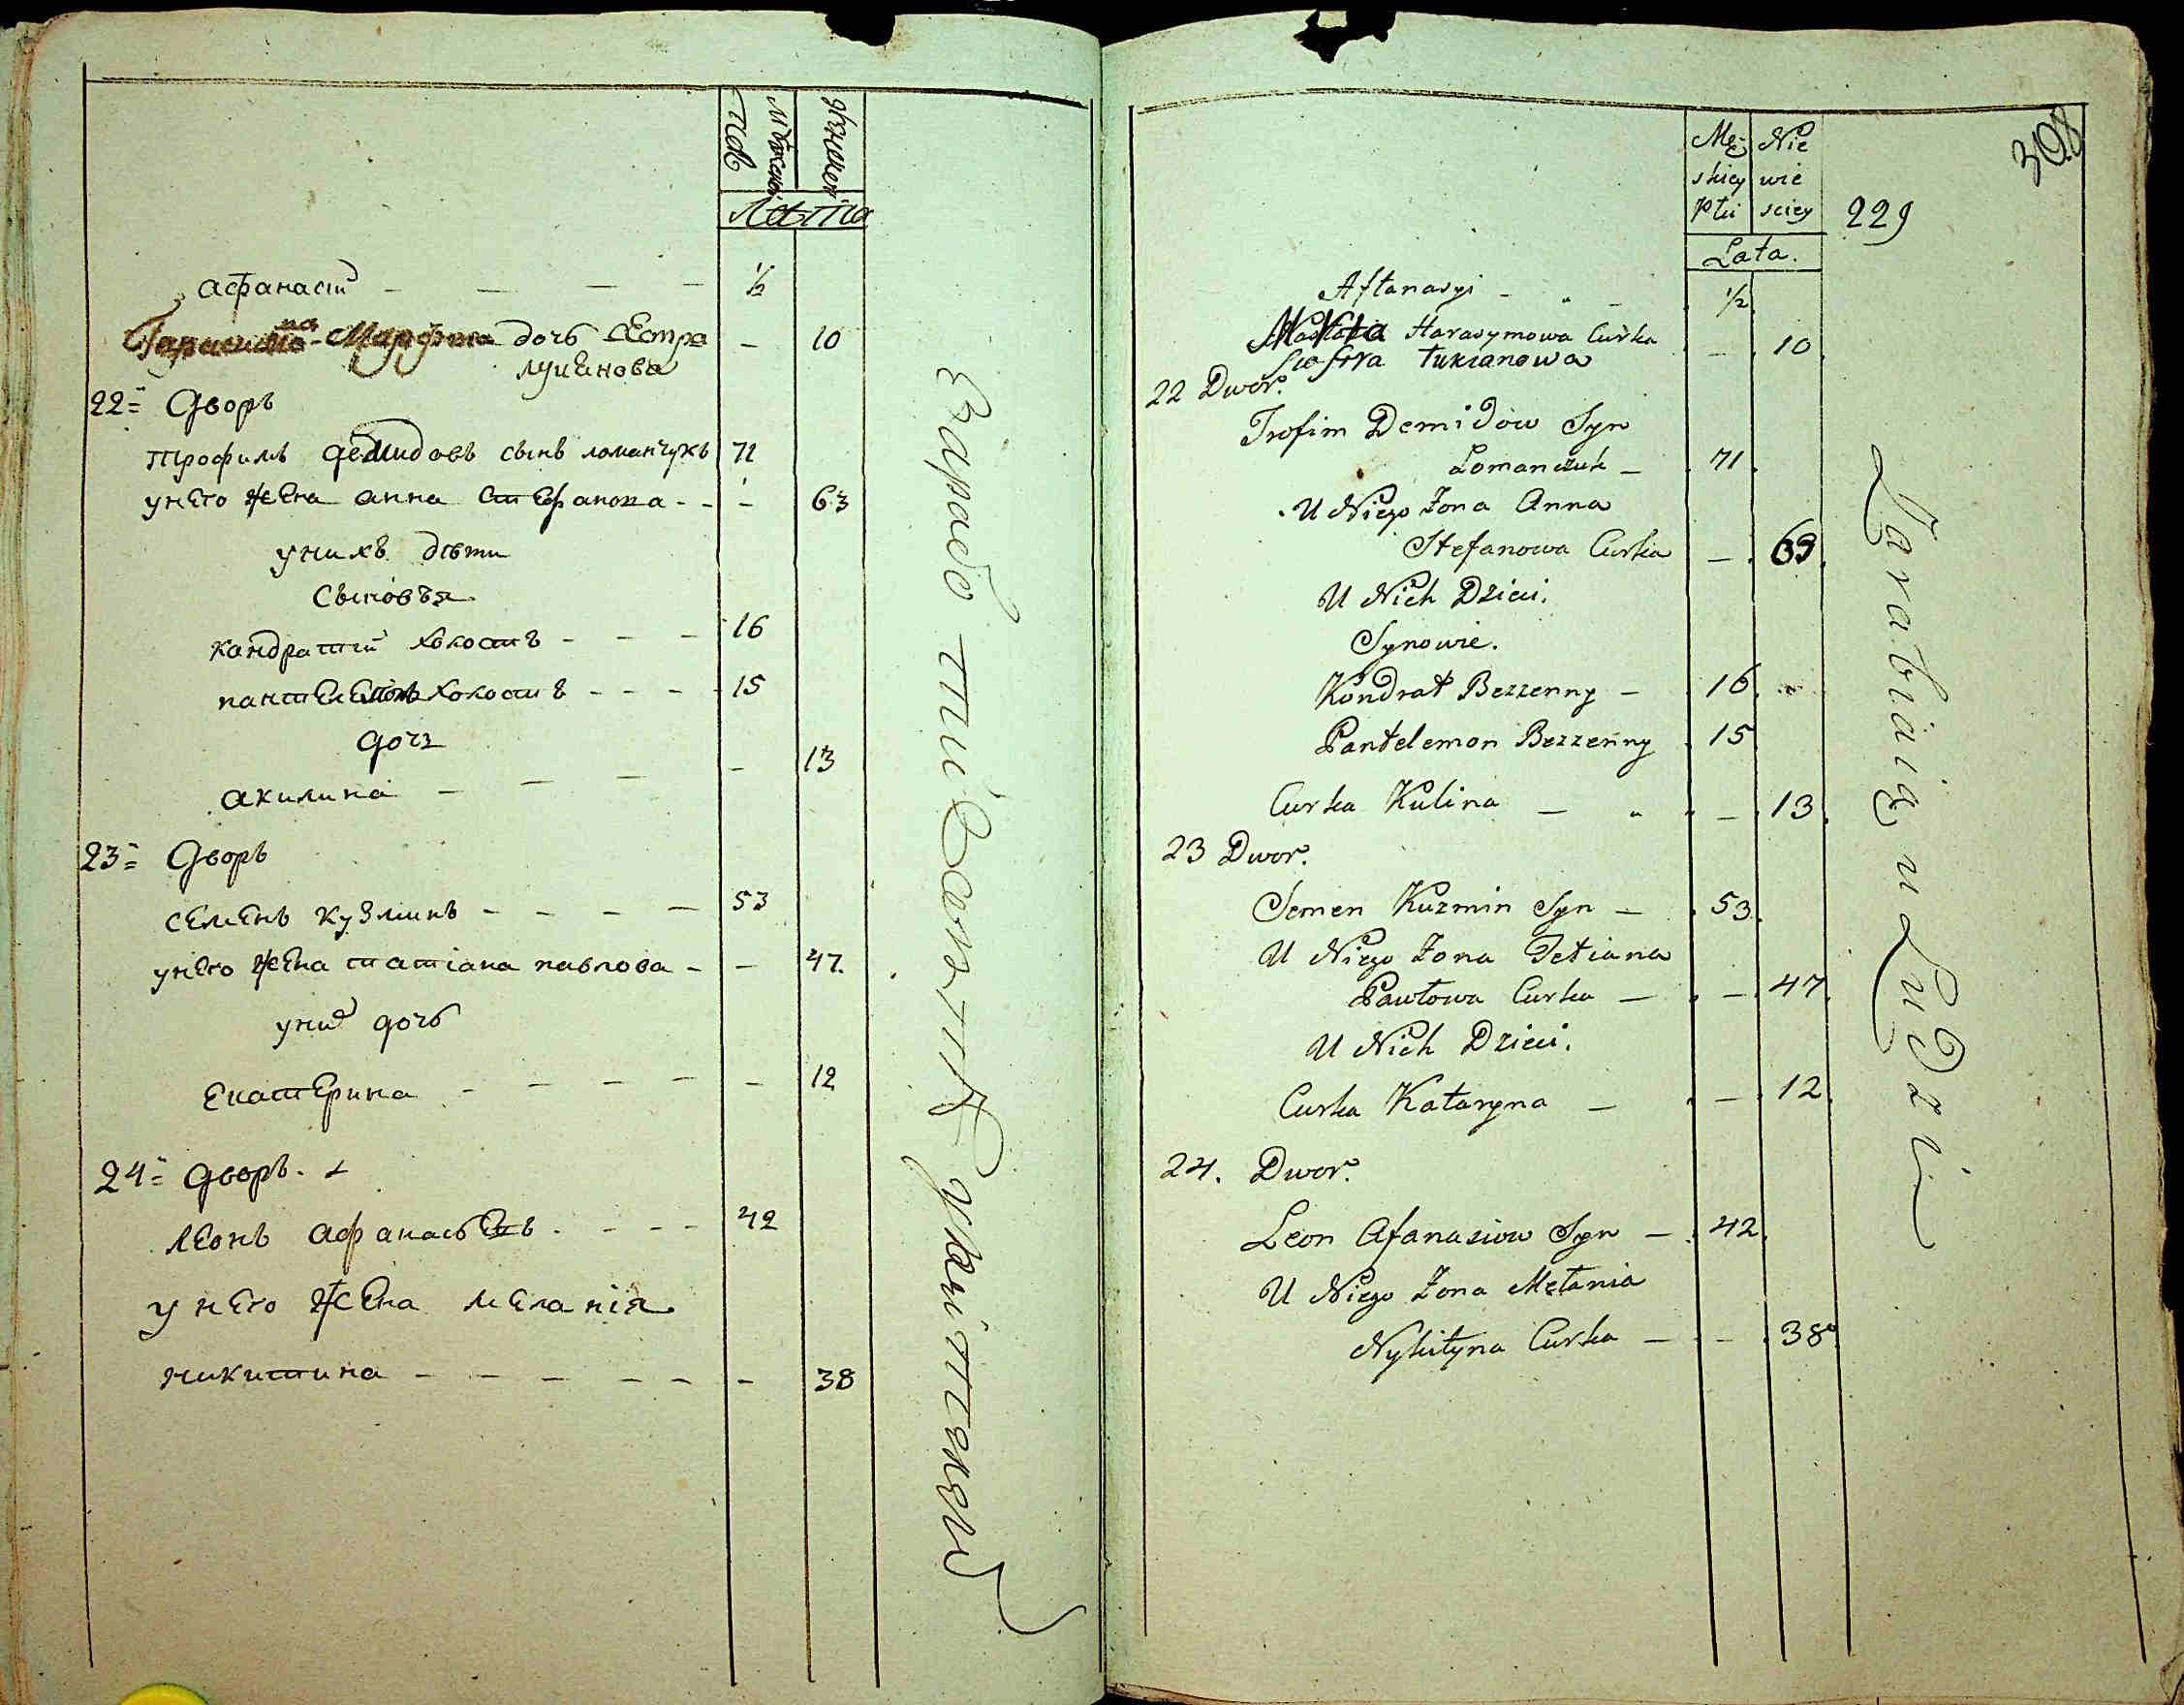 Пол
Мужеска
Женска
Лѣта
Афанасий - - - - ½
на
Гарасимо - Марфина дочь сестра - 10
луцянова
22= Дворъ
Трофимъ Демидовъ сынъ ломанчукъ 71
у него жена анна стефанова - - - 63
у нихъ дѣти
Сыновья
Кондратий холостъ - - - 16
пантелемонъ холостъ - - - 15
дочь
акилина - - - - 13
23= Дворъ
семенъ кузминъ - - - - 53
у него жена татіана павлова - - 47.
у них дочь
Екатерина - - - - - 12
24= Дворъ.
Леонъ афанасьевъ - - - - 42
у него жена меланія
никитина - - - - - - 38
Męz Nie
skiey wie
Płci sciey
Lata.
308
229
Aftanasyi - - - ½
Harasymowa Curka - 10
siostra Łukianowa
22 Dwor.
Trofim Demidow Syn
Lomanczuk - 71
U Niego Żona Anna
Stefanowa Curka - 63
U Nich Dzieci.
Synowie.
Kondrat Bezzenny - 16
Pantelemon Bezzenny 15
Curka Kulina - - - 13
23 Dwor.
Semen Kuzmin Syn - 53
U Niego Żona Tetiana
Pawłowa Curka - - 47
U Nich Dzieci.
Curka Kataryna - - 12
24. Dwor.
Leon Afanasiow Syn - 42
U Niego Żona Mełania
Nykityna Curka - - 38
Zarabiaią u Ludzi